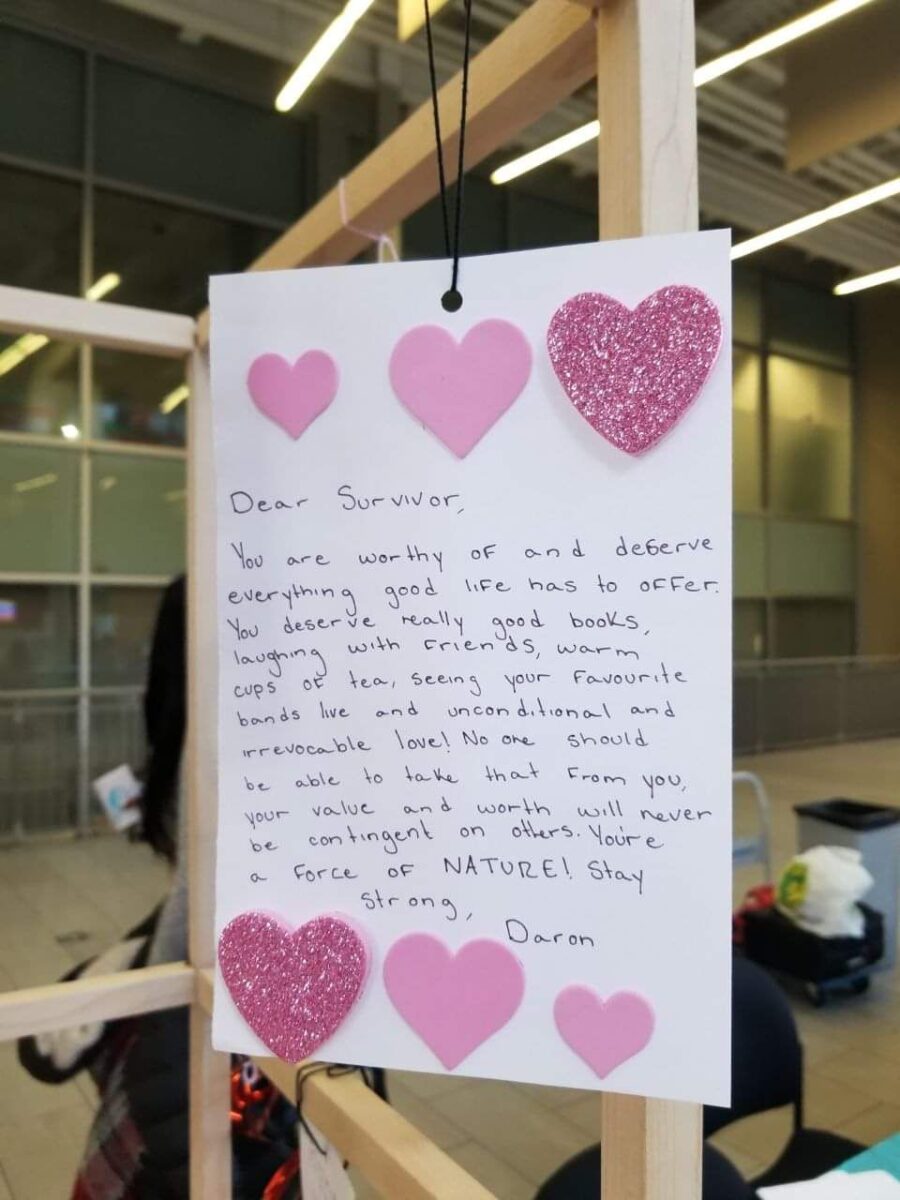 Dear Survivor,
You are worthy of and deserve
everything good life has to offer.
You deserve really good books,
laughing with friends, warm
cups of tea, seeing your favourite
bands live and unconditional and
irrevocable love! No one should
be able to take that from you,
your value and worth will never
be contingent on others. You're
a force of NATURE! Stay
strong,
Daron